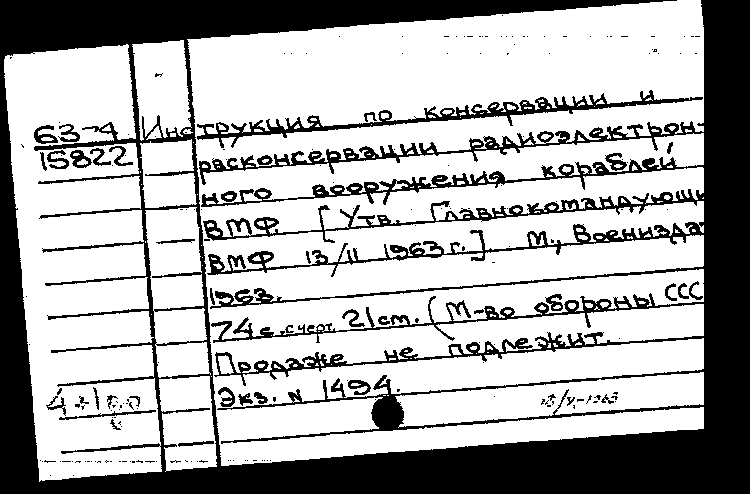 63-4 Инструкция по консервации и
15822 расконсервации радиоэлектрон-
ного вооружения кораблей
ВМФ. [Утв. Главнокомандующи
ВМФ 13/II 1963 г.]. М., Воениздат
1963.
74 с. с черт. 21 см. (М-во обороны ССС
Продаже не подлежит.
Экз. N 1494.
13/V-1963